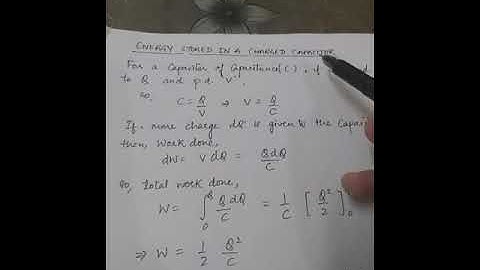 ENERGY STORED IN A CHARGED CAPACITOR
For a Capacitor of Capacitance (C), if
to Q and p.d. 'V'.
So, C = Q/V ⇒ V = Q/C
If more charge dQ is given to the Capaci
then, Work done,
dW = V dQ = QdQ/C
So, Total work done,
W = ∫₀^Q QdQ/C = 1/C [Q²/2]₀
⇒ W = 1/2 Q²/C